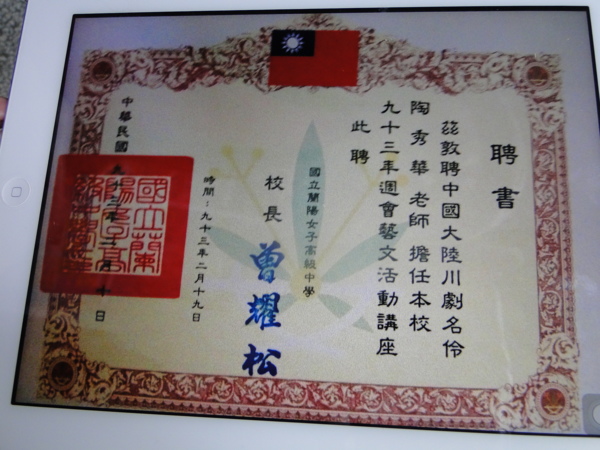 聘書
茲敦聘中國大陸川劇名伶
陶秀華老師 擔任本校
九十三年週會藝文活動講座
此聘
國立蘭陽女子高級中學
校長 曾耀松
時間：九十三年二月十九日
中華民國九十三年二月十日